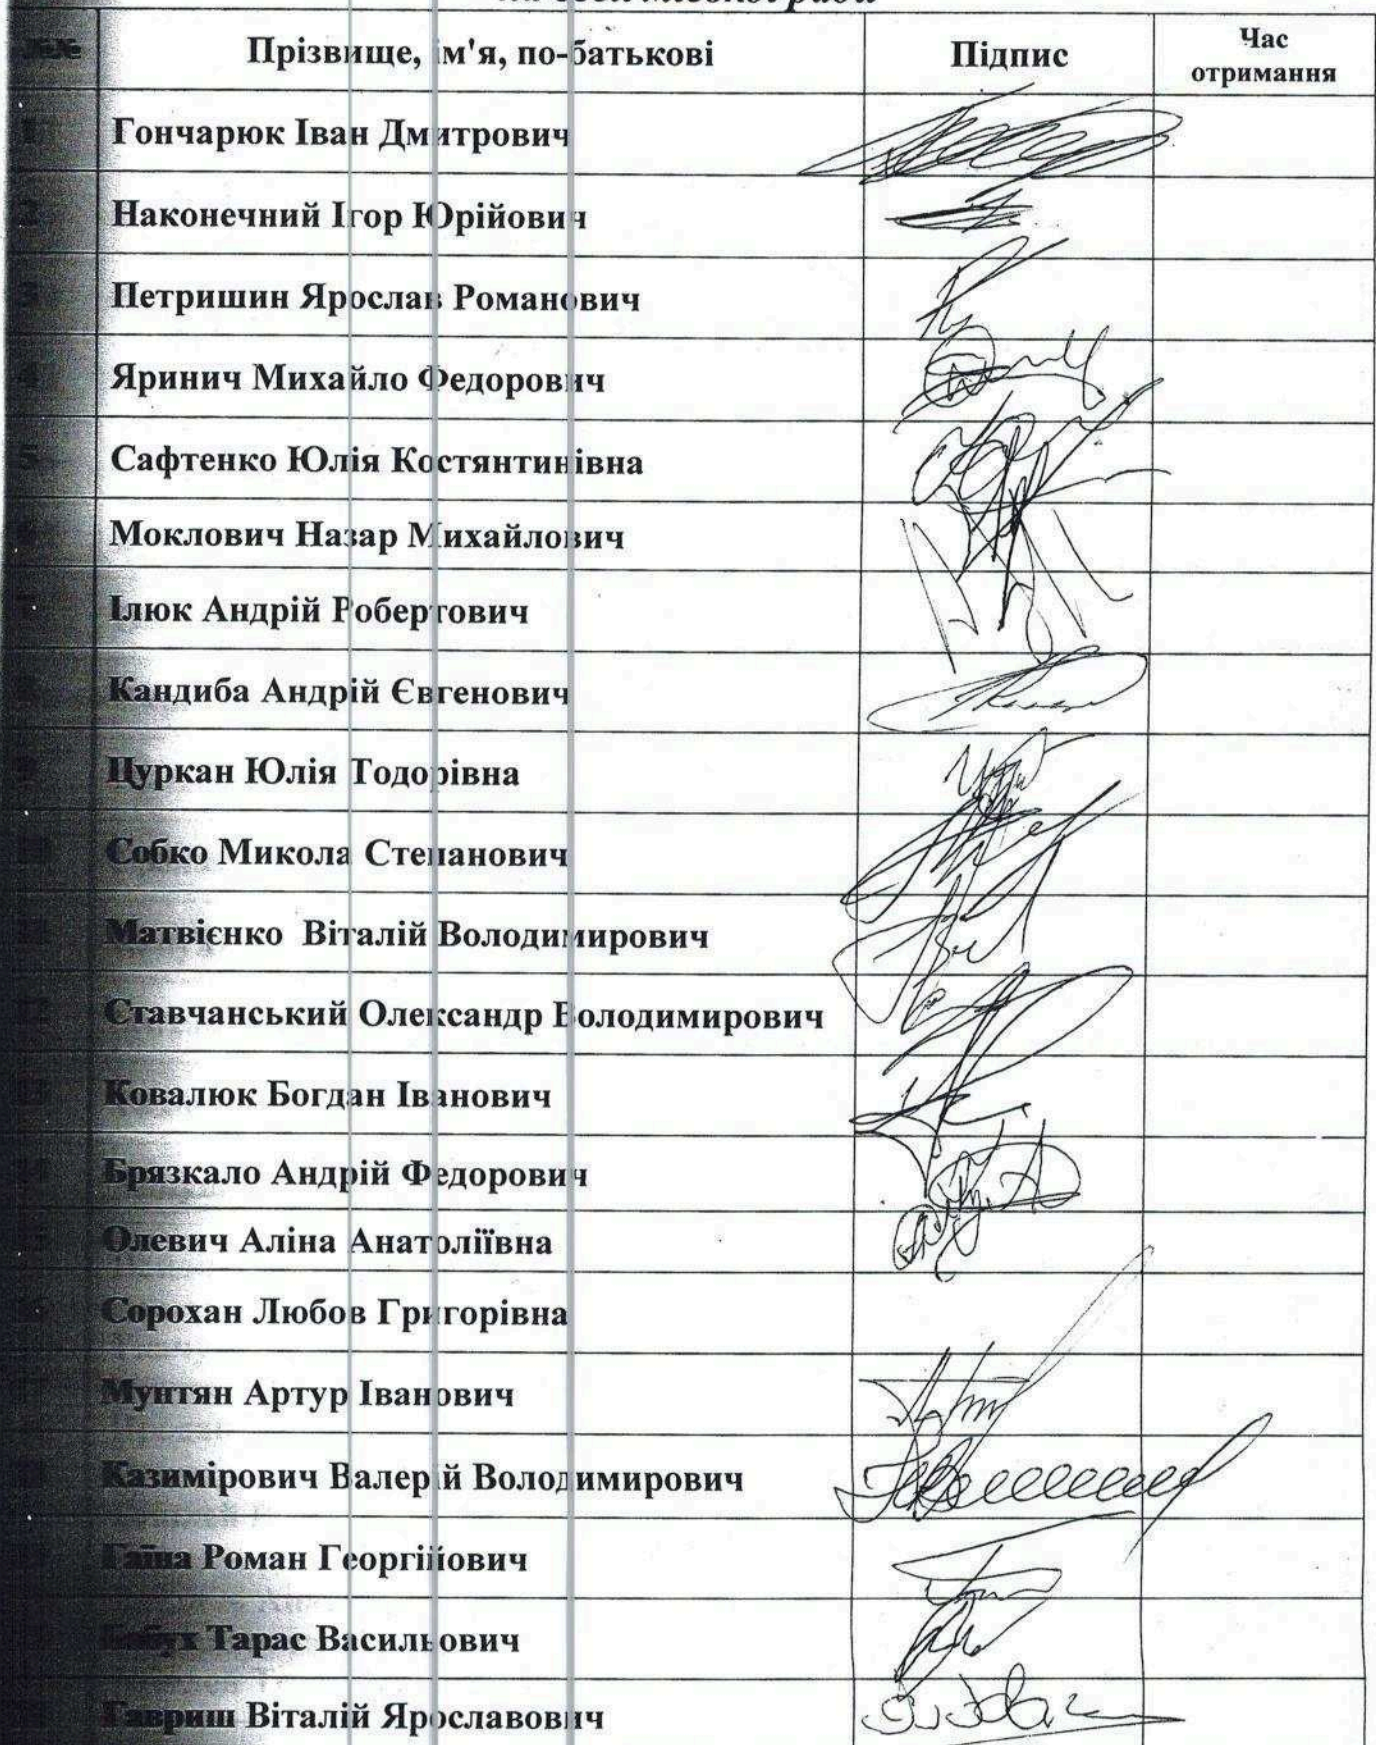 №№ Прізвище, ім'я, по-батькові Підпис Час отримання
1 Гончарюк Іван Дмитрович
2 Наконечний Ігор Юрійович
3 Петришин Ярослав Романович
4 Яринич Михайло Федорович
5 Сафтенко Юлія Костянтинівна
Моклович Назар Михайлович
Ілюк Андрій Робертович
Кандиба Андрій Євгенович
Цуркан Юлія Тодорівна
10 Собко Микола Степанович
11 Матвієнко Віталій Володимирович
12 Ставчанський Олександр Володимирович
13 Ковалюк Богдан Іванович
14 Брязкало Андрій Федорович
Олевич Аліна Анатоліївна
Сорохан Любов Григорівна
Мунтян Артур Іванович
Казимірович Валерій Володимирович
Гаїна Роман Георгійович
Бабух Тарас Васильович
Гавриш Віталій Ярославович